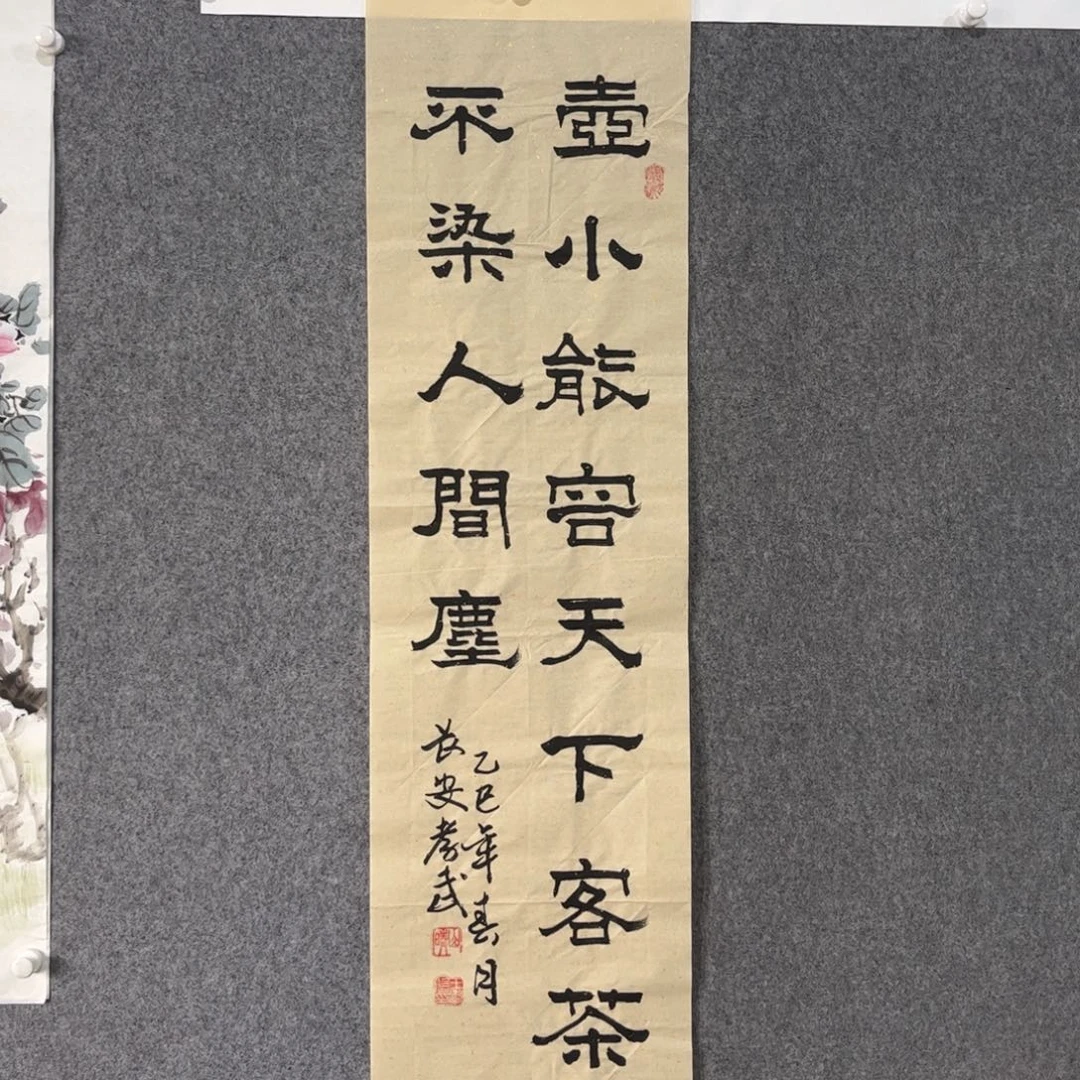 壺小能容天下客茶
不染人間塵
乙巳年春月
長安孝武